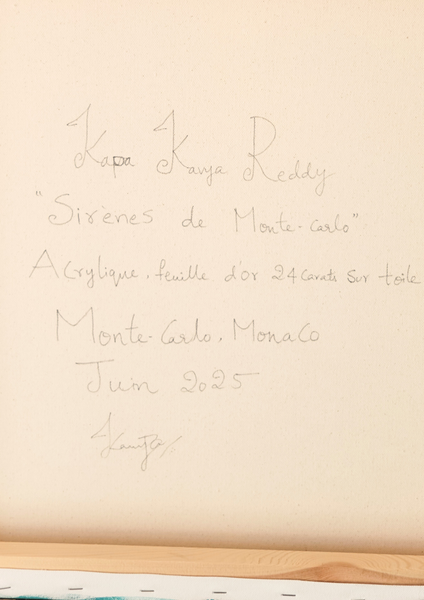 Kapa Kavya Reddy
"Sirènes de Monte-Carlo"
Acrylique, feuille d'or 24 carats sur toile
Monte-Carlo, Monaco
Juin 2025